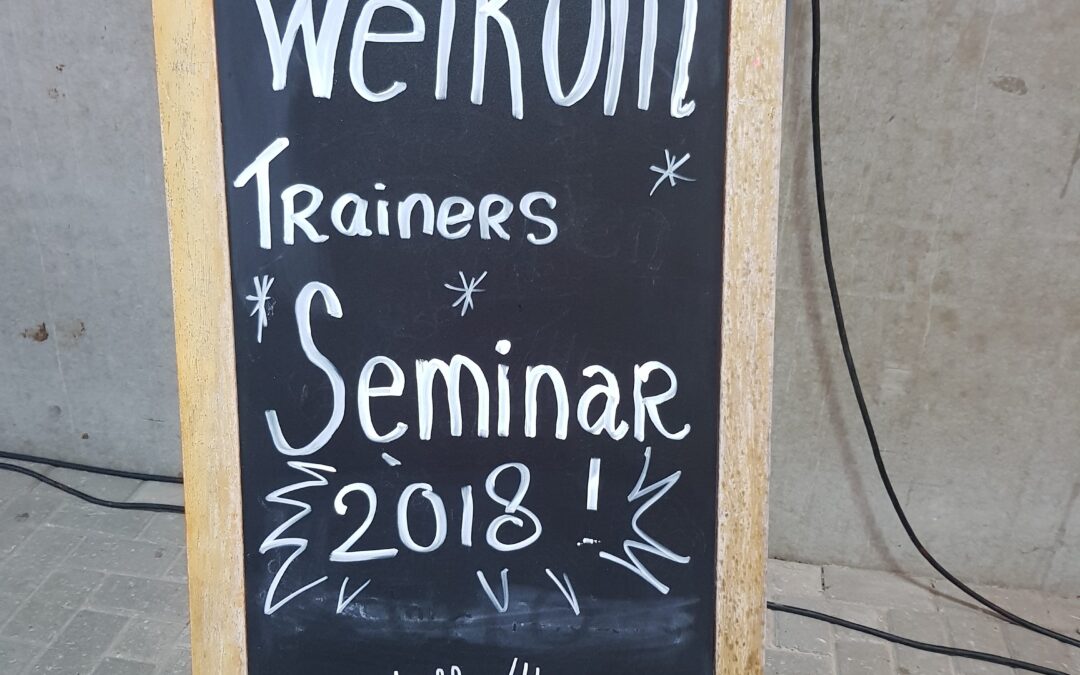 Welkom
Trainers
Seminar
2018 !